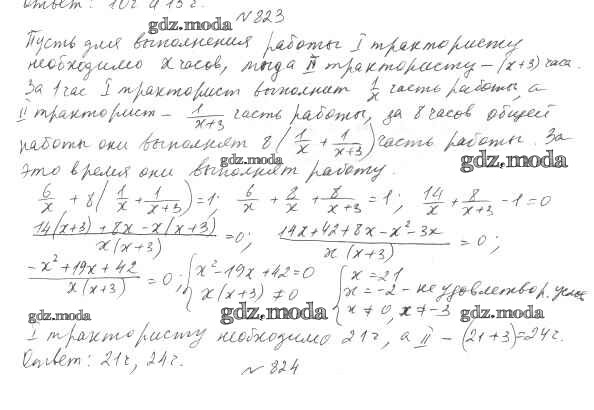 ответ: 10ч и 15ч.
gdz.moda
№ 823
Пусть для выполнения работы I трактористу
необходимо x часов, тогда II трактористу – (x+3) часа.
За 1 час I тракторист выполнит 1/x часть работы, а
II тракторист – 1/(x+3) часть работы, за 8 часов общей
работы они выполнят 8(1/x + 1/(x+3)) часть работы. За
gdz.moda gdz.moda
это время они выполнят работу.
6/x + 8(1/x + 1/(x+3)) = 1; 6/x + 8/x + 8/(x+3) = 1; 14/x + 8/(x+3) - 1 = 0
(14(x+3) + 8x - x(x+3))/(x(x+3)) = 0; (14x + 42 + 8x - x² - 3x)/(x(x+3)) = 0;
(-x² + 19x + 42)/(x(x+3)) = 0; { x² - 19x + 42 = 0 { x = 21
x(x+3) ≠ 0 x = -2 - не удовлетвор. услов.
x ≠ 0, x ≠ -3
gdz.moda gdz.moda gdz.moda
I трактористу необходимо 21ч, а II – (21+3)=24ч.
Ответ: 21ч, 24ч.
№ 824